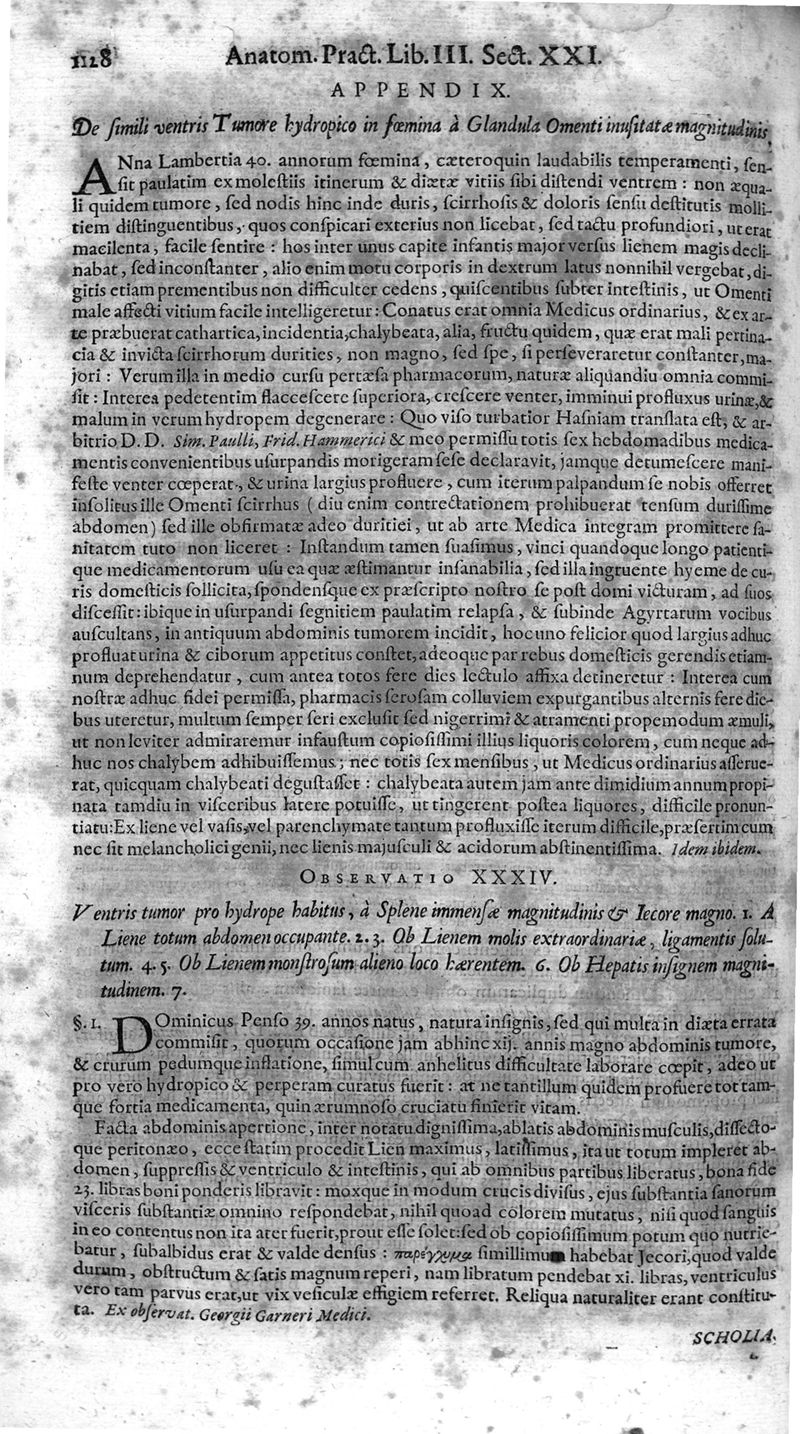 1128 Anatom. Pract. Lib. III. Sect. XXI.
APPENDIX.
De ſimili ventris Tumore hydropico in fœmina à Glandula Omenti inuſitatæ magnitudinis,
ANna Lambertia 40. annorum fœmina, cæteroquin laudabilis temperamenti, ſen-
ſit paulatim ex moleſtiis itinerum & diætæ vitiis ſibi diſtendi ventrem: non æqua-
li quidem tumore, ſed nodis hinc inde duris, ſcirrhoſis & doloris ſenſu deſtitutis molli-
tiem diſtinguentibus, quos conſpicari exterius non licebat, ſed tactu profundiori, ut erat
macilenta, facile ſentire: hos inter unus capite infantis major verſus lienem magis decli-
nabat, ſed inconſtanter, alio enim motu corporis in dextrum latus nonnihil vergebat, di-
gitis etiam prementibus non difficulter cedens, quiſcentibus ſubter inteſtinis, ut Omenti
male affecti vitium facile intelligeretur: Conatus erat omnia Medicus ordinarius, & ex ar-
te præbuerat cathartica, incidentia, chalybeata, alia, fructu quidem, quæ erat mali pertina-
cia & invicta ſcirrhorum durities, non magno, ſed ſpe, ſi perſeveraretur conſtanter, ma-
jori: Verum illa in medio curſu pertæſa pharmacorum, naturæ aliquandiu omnia commi-
ſit: Interea pedetentim flacceſcere ſuperiora, creſcere venter, imminui profluxus urinæ, &
malum in verum hydropem degenerare: Quo viſo turbatior Hafniam tranſlata eſt, & ar-
bitrio D. D. Sim. Paulli, Frid. Hammerici & meo permiſſu totis ſex hebdomadibus medica-
mentis convenientibus uſurpandis morigeram ſeſe declaravit, jamque detumeſcere mani-
feſte venter cœperat, & urina largius profluere, cum iterum palpandum ſe nobis offerret
inſolitus ille Omenti ſcirrhus (diu enim contrectationem prohibuerat tenſum duriſſime
abdomen) ſed ille obfirmatæ adeo duritiei, ut ab arte Medica integram promittere ſa-
nitatem tuto non liceret: Inſtandum tamen ſuaſimus, vinci quandoque longo patienti-
que medicamentorum uſu ea quæ æſtimantur inſanabilia, ſed illa ingruente hyeme de cu-
ris domeſticis ſollicita, ſpondenſque ex præſcripto noſtro ſe poſt domi victuram, ad ſuos
diſceſſit: ibique in uſurpandi ſegnitiem paulatim relapſa, & ſubinde Agyrtarum vocibus
auſcultans, in antiquum abdominis tumorem incidit, hoc uno felicior quod largius adhuc
profluat urina & ciborum appetitus conſtet, adeoque par rebus domeſticis gerendis etiam-
num deprehendatur, cum antea totos fere dies lectulo affixa detineretur: Interea cum
noſtræ adhuc fidei permiſſa, pharmacis ſeroſam colluviem expurgantibus alternis fere die-
bus uteretur, multum ſemper ſeri excluſit ſed nigerrimi & atramenti propemodum æmuli,
ut non leviter admiraremur infauſtum copioſiſſimi illius liquoris colorem, cum neque ad-
huc nos chalybem adhibuiſſemus; nec totis ſex menſibus, ut Medicus ordinarius aſſerue-
rat, quicquam chalybeati deguſtaſſet: chalybeata autem jam ante dimidium annum propi-
nata tamdiu in viſceribus latere potuiſſe, ut tingerent poſtea liquores, difficile pronun-
tiatu: Ex liene vel vaſis, vel parenchymate tantum profluxiſſe iterum difficile, præſertim cum
nec ſit melancholici genii, nec lienis majuſculi & acidorum abſtinentiſſima. Idem ibidem.
OBSERVATIO XXXIV.
Ventris tumor pro hydrope habitus, à Splene immenſæ magnitudinis & Iecore magno. 1. A
Liene totum abdomen occupante. 2. 3. Ob Lienem molis extraordinariæ, ligamentis ſolu-
tum. 4. 5. Ob Lienem monſtroſum alieno loco hærentem. 6. Ob Hepatis inſignem magni-
tudinem. 7.
§. 1. DOminicus Penſo 39. annos natus, natura inſignis, ſed qui multa in diæta errata
commiſit, quorum occaſione jam abhinc xij. annis magno abdominis tumore,
& crurum pedumque inflatione, ſimul cum anhelitus difficultate laborare cœpit, adeo ut
pro vero hydropico & perperam curatus fuerit: at ne tantillum quidem profuere tot tam-
que fortia medicamenta, quin ærumnoſo cruciatu finierit vitam.
Facta abdominis apertione, inter notatu digniſſima, ablatis abdominis muſculis, diſſecto-
que peritonæo, ecce ſtatim procedit Lien maximus, latiſſimus, ita ut totum impleret ab-
domen, ſuppreſſis & ventriculo & inteſtinis, qui ab omnibus partibus liberatus, bona fide
23. libras boni ponderis libravit: moxque in modum crucis diviſus, ejus ſubſtantia ſanorum
viſceris ſubſtantiæ omnino reſpondebat, nihil quoad colorem mutatus, niſi quod ſanguis
in eo contentus non ita ater fuerit, prout eſſe ſolet: ſed ob copioſiſſimum potum quo nutrie-
batur, ſubalbidus erat & valde denſus: παρέγχυμα ſimillimum habebat Jecori, quod valde
durum, obſtructum & ſatis magnum reperi, nam libratum pendebat xi. libras, ventriculus
vero tam parvus erat, ut vix veſiculæ effigiem referret. Reliqua naturaliter erant conſtitu-
ta. Ex obſervat. Georgii Garneri Medici.
SCHOLIA.